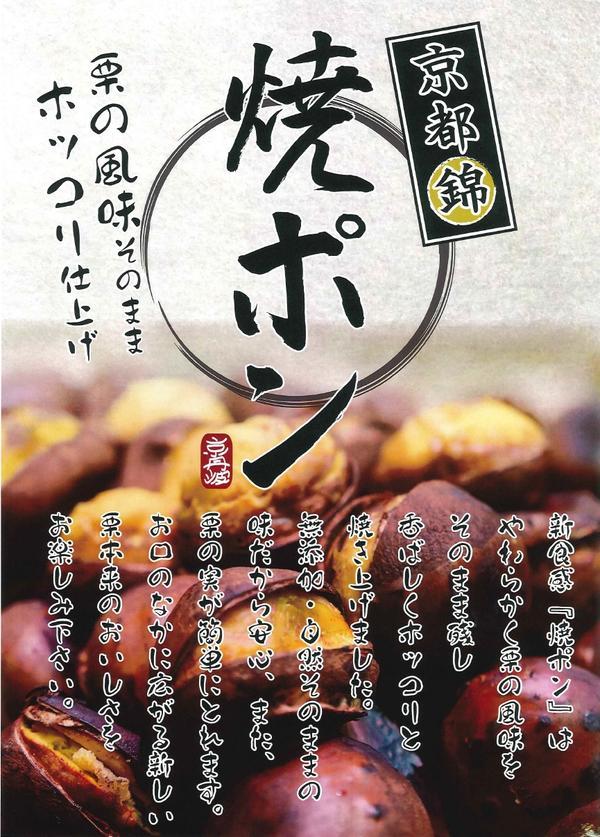 京都錦
焼ポン
栗の風味そのまま
ホッコリ仕上げ
新食感『焼ポン』は
やわらかく栗の風味を
そのまま残し
香ばしくホッコリと
焼き上げました。
無添加・自然そのままの
味だから安心、また、
栗の実が簡単にとれます。
お口のなかに広がる新しい
栗本来のおいしさを
お楽しみ下さい。